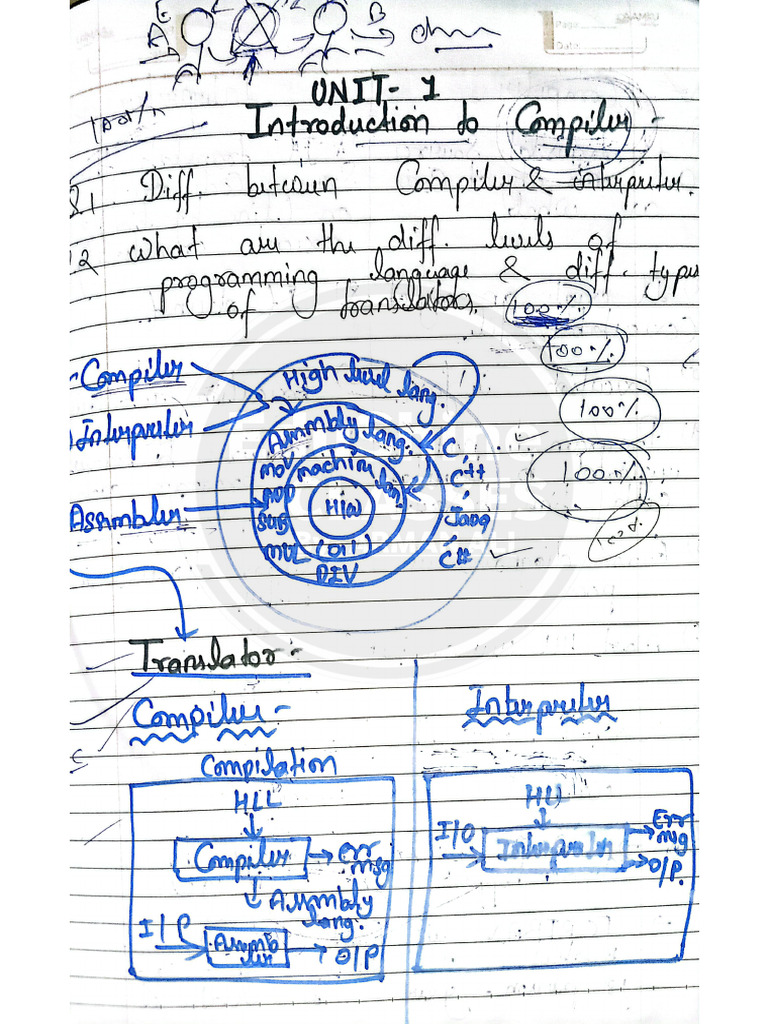 E
A
B
100%
UNIT- 1
Introduction to Compiler :-
Q1 Diff. between Compiler & interpreter.
Q2 what are the diff. levels of
programming language & diff. types
of translators.
100%
100%
100%
100%
100%
- Compiler
Interpreter
Assembler
High level lang.
Assmbly lang.
machine lan.
H/W
(0,1)
MOV
ADD
SUB
MUL
DIV
C,
C++
Java
C#
Translator :-
Compiler -
Compilation
HLL
Compiler
Err
msg
Assmbly
lang.
I/P
Assmb
ler
O/P
Interpreter
HLL
I/O
Interpreter
Err
msg
O/P.